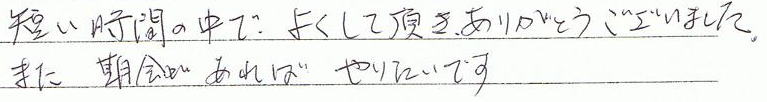 短い時間の中で、よくして頂き、ありがとうございました。
また 期会があれば やりたいです